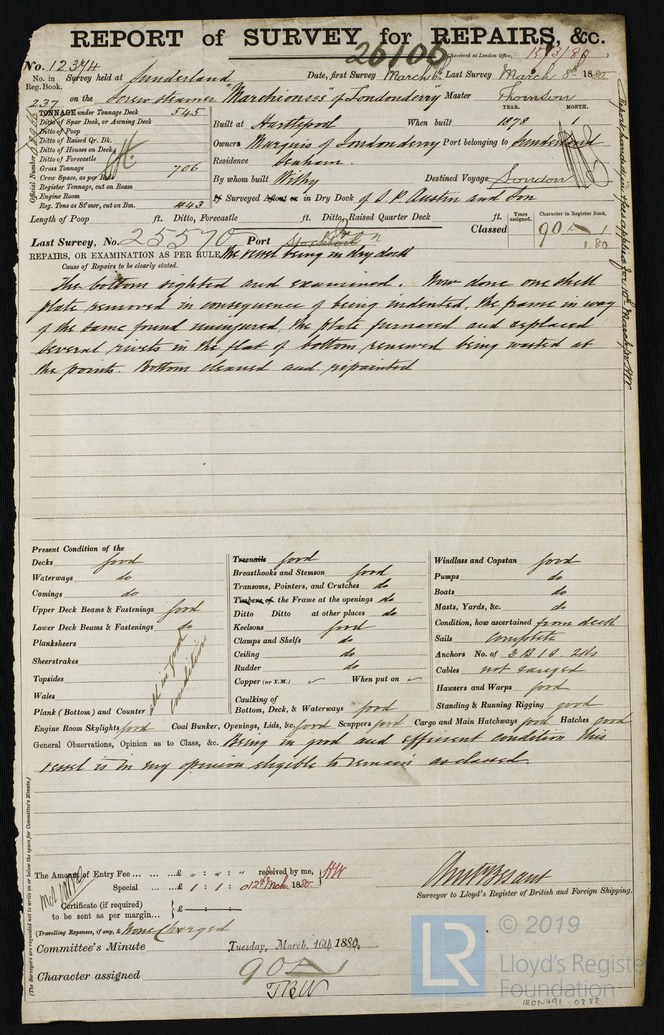 REPORT of SURVEY for REPAIRS, &c.
26106
Received at London Office, 15/3/80
No. 12374
No. in Survey held at Sunderland Date, first Survey March 6th Last Survey March 8th 1880
Reg. Book.
237 on the Screw steamer "Marchioness of Londonderry" Master Thomson
TONNAGE under Tonnage Deck 545
Ditto of Spar Deck, or Awning Deck
Ditto of Poop
Ditto of Raised Qr. Dk.
Ditto of Houses on Deck
Ditto of Forecastle
Gross Tonnage 706
Crew Space, as per Rule
Register Tonnage, out on Beam
Engine Room
Reg. Tons as St'mer, cut on Bm. 443
Official Number
YEAR. MONTH.
Built at Hartlepool When built 1878 1
Owners Marquis of Londonderry Port belonging to Sunderland
Residence Seaham.
By whom built Withy Destined Voyage London
If Surveyed Afloat or in Dry Dock of S. P. Austin and Son
Length of Poop ft. Ditto, Forecastle ft. Ditto, Raised Quarter Deck ft.
Classed Years assigned. Character in Register Book.
90 1
1.80
Last Survey, No. 25570 Port
REPAIRS, OR EXAMINATION AS PER RULE, The vessel being in dry dock
Cause of Repairs to be clearly stated.
The bottom sighted and examined. Now done one shell
plate removed in consequence of being indented, the frame in way
of the same found uninjured, the plate furnaced and replaced
several rivets in the flat of bottom renewed being wasted at
the points. Bottom cleaned and repainted
Present Condition of the
Decks good
Waterways do
Comings do
Upper Deck Beams & Fastenings good
Lower Deck Beams & Fastenings do
Planksheers
Sheerstrakes
Topsides
Wales
Plank (Bottom) and Counter
all in good condition
Treenails good
Breasthooks and Stemson good
Transoms, Pointers, and Crutches do
Timbers of the Frame at the openings do
Ditto Ditto at other places do
Keelsons good
Clamps and Shelfs do
Ceiling do
Rudder do
Copper (or Y.M.) When put on
Caulking of
Bottom, Deck, & Waterways good
Windlass and Capstan good
Pumps do
Boats do
Masts, Yards, &c. do
Condition, how ascertained from deck
Sails complete
Anchors No. of 3 B 1 S 2 Ks
Cables not ranged
Hawsers and Warps good
Standing & Running Rigging good
Engine Room Skylights good Coal Bunker, Openings, Lids, &c. good Scuppers good Cargo and Main Hatchways good Hatches good
General Observations, Opinion as to Class, &c. Being in good and efficient condition this
vessel is in my opinion eligible to remain as classed.
(The Surveyors are requested not to write on or below the space for Committee's Minute.)
The Amount of Entry Fee ... ... ... £ " : " : " received by me,
Special ... ... £ 1 : 1 : 0 12th Mch. 1880. AW
Certificate (if required)
to be sent as per margin... £
(Travelling Expenses, if any, £ None Charged
Surveyor to Lloyd's Register of British and Foreign Shipping.
Committee's Minute Tuesday, March, 16th 1880.
Character assigned 90 1
© 2019
LR
Lloyd's Register
Foundation
IRON491-0282